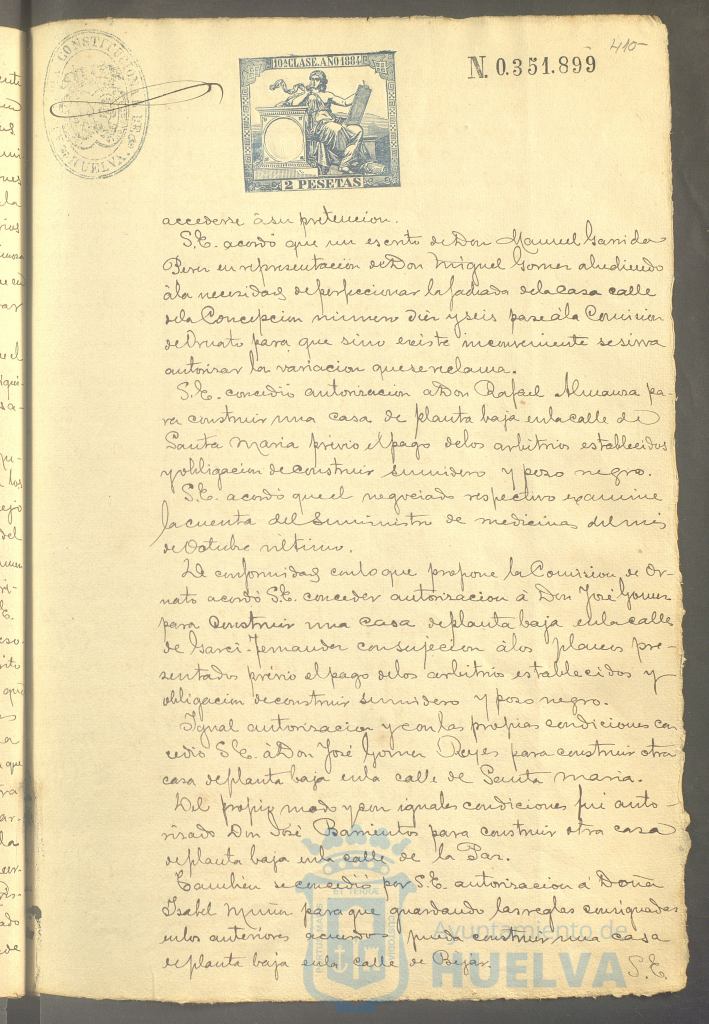 410
CONSTITUCIONAL DE HUELVA.
10ª CLASE. AÑO 1884
2 PESETAS
N. 0.351.899
accederse á su pretencion.
S.E. acordó que un escrito de Don Manuel Garrido
Perez en representacion de Don Miguel Gomez aludiendo
á la necesidad de perfeccionar la fachada de la casa calle
de la Concepcion numero Diez y seis pase á la Comision
de Ornato para que sino existe inconveniente se sirva
autorizar la variacion que se reclama.
S.E. concedio autorizacion a Don Rafael Almansa pa-
ra construir una casa de planta baja en la calle de
Santa Maria previo el pago de los arbitrios establecidos
y obligacion de construir sumidero y pozo negro.
S.E. acordó que el negociado respectivo examine
la cuenta del suministro de medicinas del mes
de Octubre ultimo.
De conformidad con lo que propone la Comision de Or-
nato acordó S.E. conceder autorizacion á Don José Gomez
para construir una casa de planta baja en la calle
de Garci-Fernandez con sujecion á los planos pre-
sentados prévio el pago de los arbitrios establecidos y
obligacion de construir sumidero y pozo negro.
Igual autorizacion y con las propias condiciones con
cedió S.E. á Don José Gomez Reyes para construir otra
casa de planta baja en la calle de Santa Maria.
Del propio modo y con iguales condiciones fué auto-
rizado Don José Barrientos para construir otra casa
de planta baja en la calle de la Paz.
Tambien se concedió por S.E. autorizacion á Doña
Isabel Muñoz para que guardando las reglas consignadas
en los anteriores acuerdos pueda construir una casa
de planta baja en la calle de Bejar.
S.E.
Ayuntamiento de
HUELVA